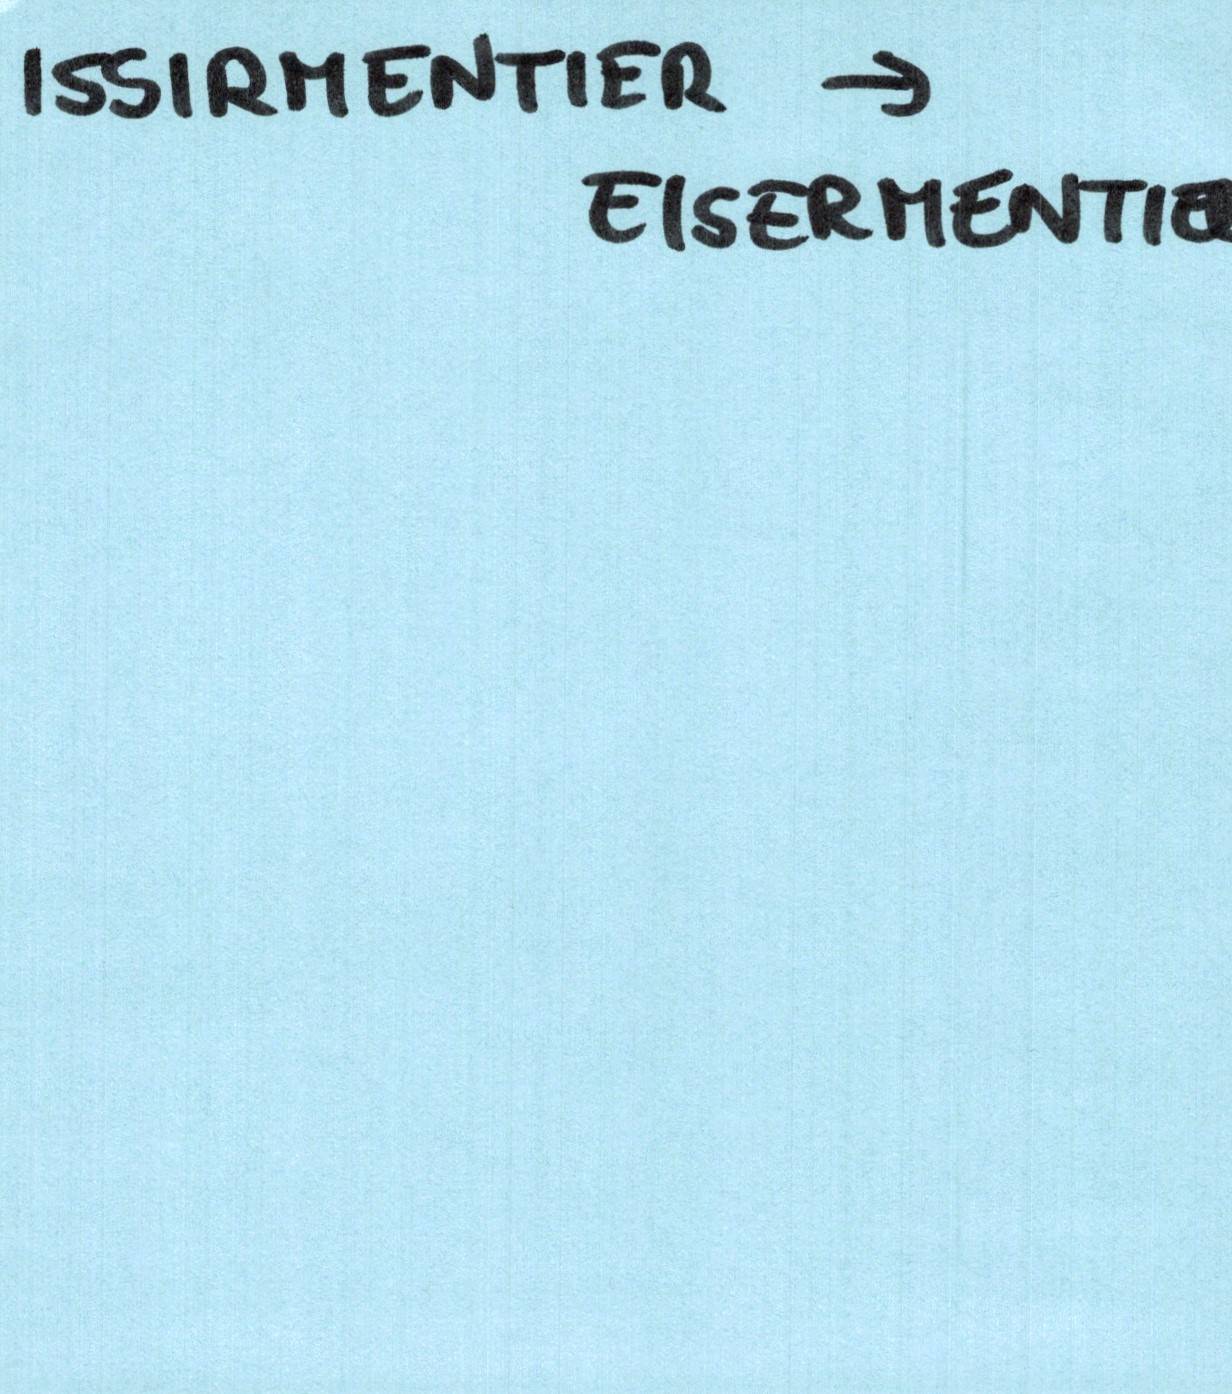 ISSIRMENTIER →
EISERMENTIER